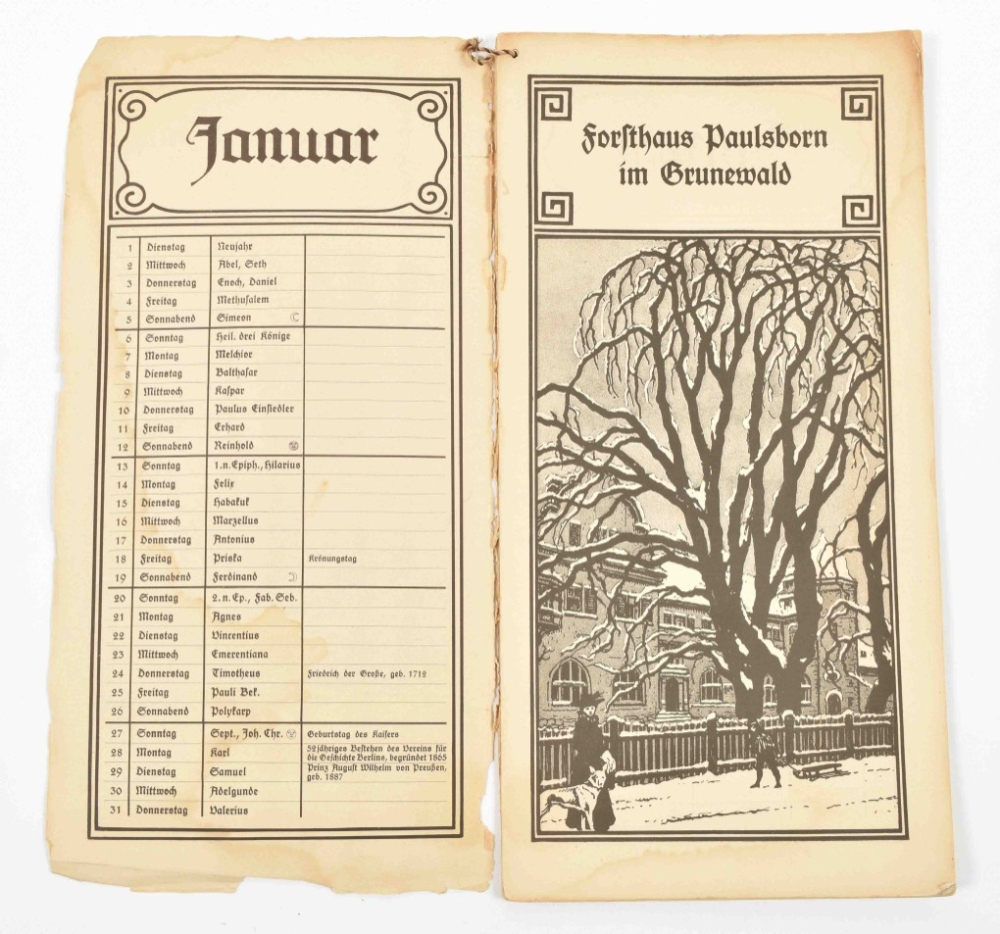 Januar
1 Dienstag Neujahr
2 Mittwoch Abel, Seth
3 Donnerstag Enoch, Daniel
4 Freitag Methusalem
5 Sonnabend Simeon
6 Sonntag Heil. drei Könige
7 Montag Melchior
8 Dienstag Balthasar
9 Mittwoch Kaspar
10 Donnerstag Paulus Einsiedler
11 Freitag Erhard
12 Sonnabend Reinhold
13 Sonntag 1.n.Epiph., Hilarius
14 Montag Felix
15 Dienstag Habakuk
16 Mittwoch Marzellus
17 Donnerstag Antonius
18 Freitag Priska Krönungstag
19 Sonnabend Ferdinand
20 Sonntag 2.n.Ep., Fab. Seb.
21 Montag Agnes
22 Dienstag Vincentius
23 Mittwoch Emerentiana
24 Donnerstag Timotheus Friedrich der Große, geb. 1712
25 Freitag Pauli Bek.
26 Sonnabend Polykarp
27 Sonntag Sept., Joh. Chr. Geburtstag des Kaisers
28 Montag Karl 52jähriges Bestehen des Vereins für
die Geschichte Berlins, begründet 1865
29 Dienstag Samuel Prinz August Wilhelm von Preußen,
geb. 1887
30 Mittwoch Adelgunde
31 Donnerstag Valerius
Forsthaus Paulsborn
im Grunewald